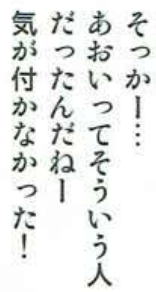 そっかー…
あおいってそういう人
だったんだねー
気が付かなかった！